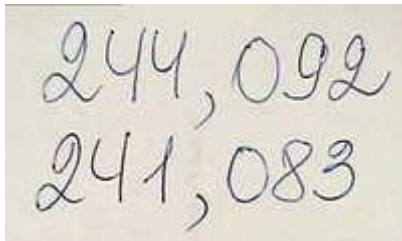 244,092
241,083